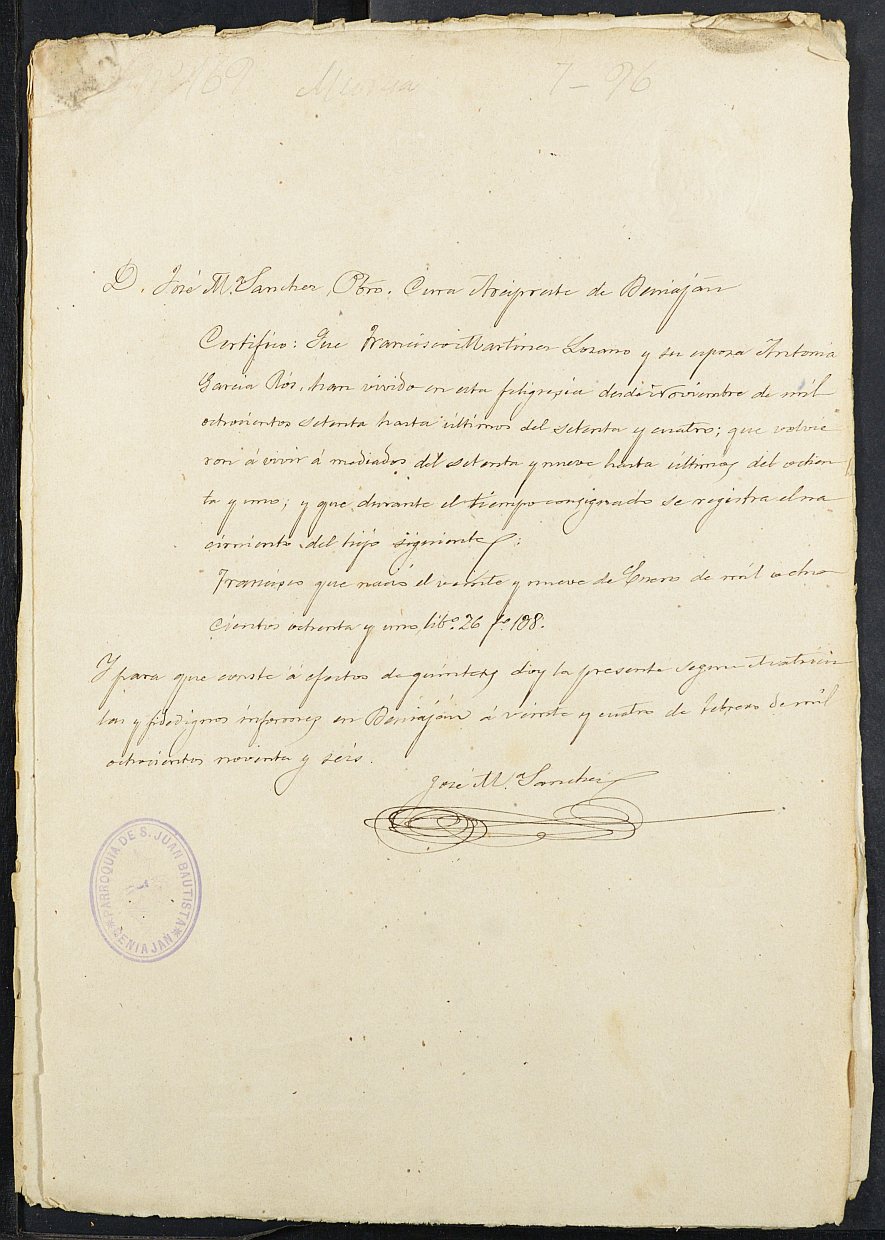 Murcia 7-96
D. José Mª Sanchez, Pbro. Cura Arcipreste de Beniaján
Certifico: Que Francisco Martinez Lozano y su esposa Antonia
Garcia Ros, han vivido en esta feligresia desde Noviembre de mil
ochocientos setenta hasta últimos del setenta y cuatro; que volvie
ron á vivir á mediados del setenta y nueve hasta últimos del ochen
ta y uno; y que durante el tiempo consignado se registra el na
cimiento del hijo siguiente:
Francisco que nació el veinte y nueve de Enero de mil ocho
cientos ochenta y uno, libº. 26 fº 108.
Y para que conste á efectos de quintas doy la presente segun matricu
las y fidedignos informes en Beniaján á veinte y cuatro de Febrero de mil
ochocientos noventa y seis.
José M.ª Sanchez
PARROQUIA DE S. JUAN BAUTISTA
* BENIAJAN *